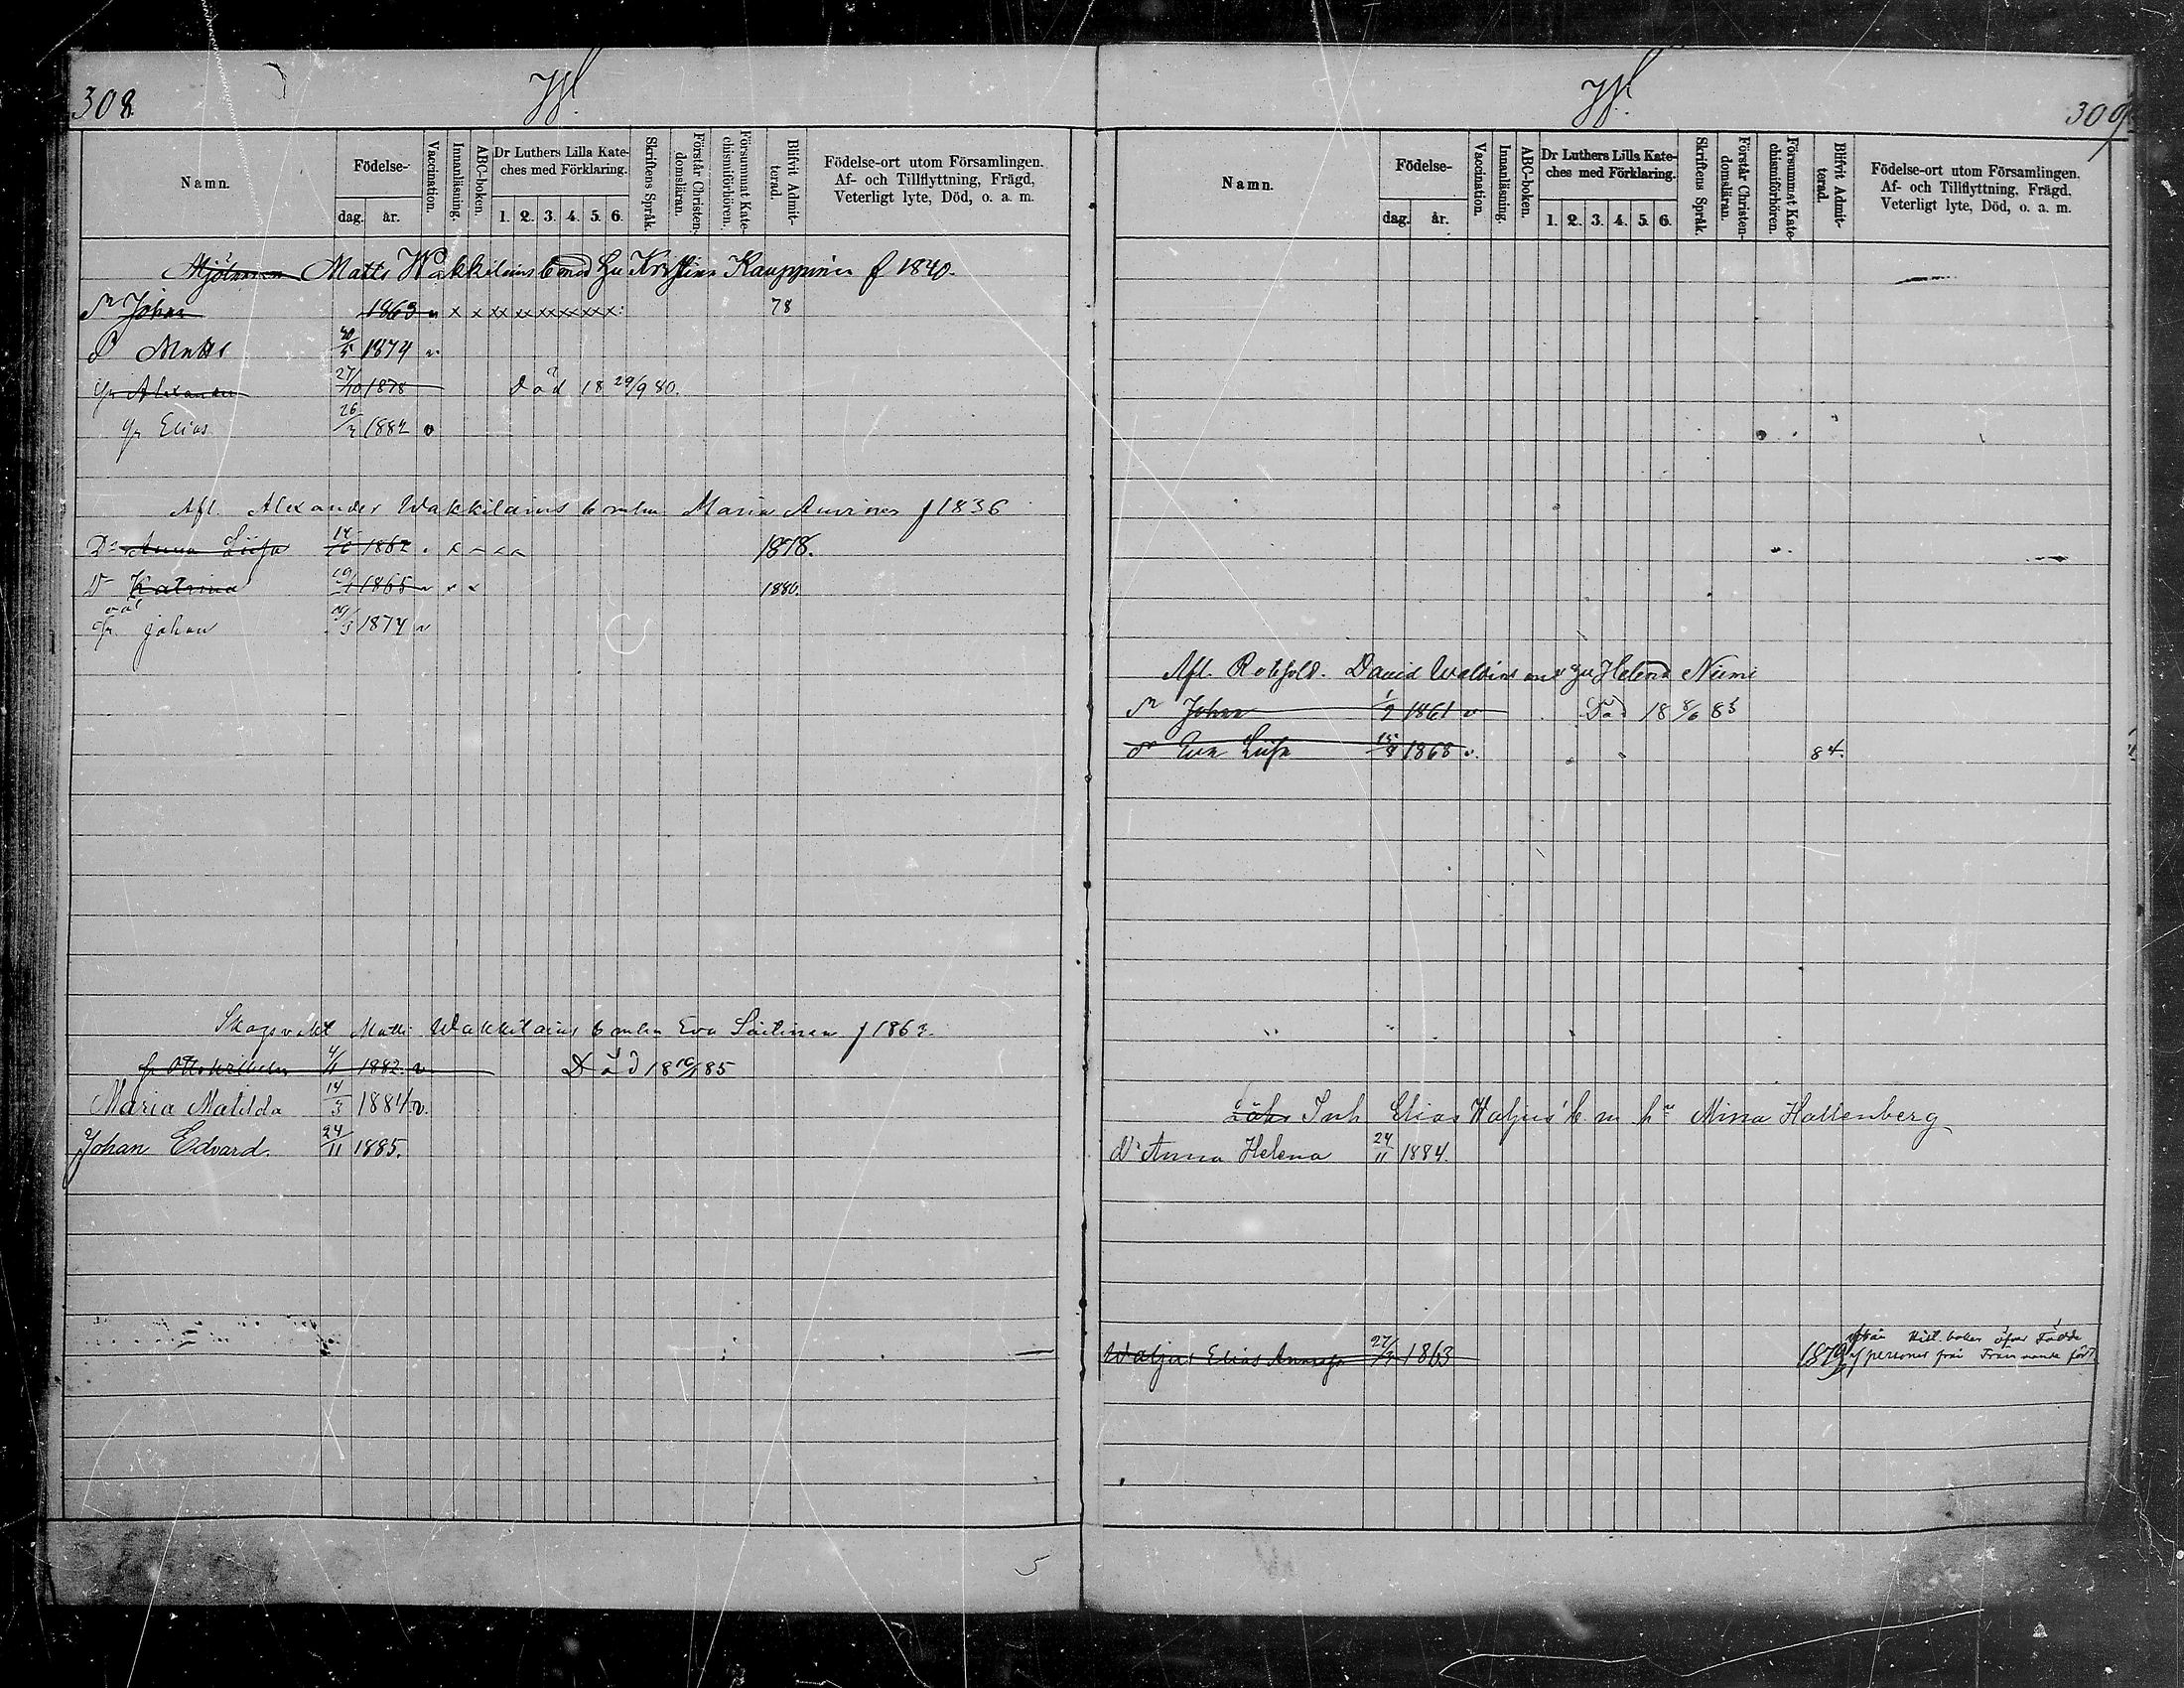 308
Namn.
Födelse-
dag. år.
Vaccination.
Innanläsning.
ABC-boken.
Dr Luthers Lilla Kate-
ches med Förklaring.
1. 2. 3. 4. 5. 6.
Skriftens Språk.
Förstår Christen-
domsläran.
Försummat Kate-
chismiförhören.
Blifvit Admit-
terad.
Födelse-ort utom Församlingen.
Af- och Tillflyttning, Frägd,
Veterligt lyte, Död, o. a. m.
Mjölnaren Matts Wakkilains b med Hu Kristina Kauppinen f 1840.
Sn Johan 1863 v x x xx xx xxxxxxx: 78
S Matts 30/5 1874 v.
Gr Alexander 27/10 1878 Död 18 29/9 80.
Gr Elias 26/2 1882 v
Afl. Alexander Wakkilains b mhu Maria Auvinen f 1836
Dr Anna Liisa 14/6 1862 1878.
Dr Katrina 1865 v x x 1880.
oäl
Gr Johan 29/3 1874 v
Skogsvakt Matti Wakkilains b mhu Eva Laitinen f 1863.
gr Otto Wilhelm 4/1 1882. v Död 18 10/1 85
Maria Matilda 14/3 1884. v.
Johan Edvard. 24/11 1885.
309
Namn.
Födelse-
dag. år.
Vaccination.
Innanläsning.
ABC-boken.
Dr Luthers Lilla Kate-
ches med Förklaring.
1. 2. 3. 4. 5. 6.
Skriftens Språk.
Förstår Christen-
domsläran.
Försummat Kate-
chismiförhören.
Blifvit Admit-
terad.
Födelse-ort utom Församlingen.
Af- och Tillflyttning, Frägd.
Veterligt lyte, Död, o. a. m.
Afl. Rotesold. David Hu Helena Niemi
Sn Johan 1/2 1861 v Död 18 8/6 83
dr Eva Liisa 15/8 1868 v. 84.
Inh Elias Waljus' b m hu Mina Hallenberg
Dr Anna Helena 24/11 1884.
Waljus Elias 27/3 1863 1879
personer från